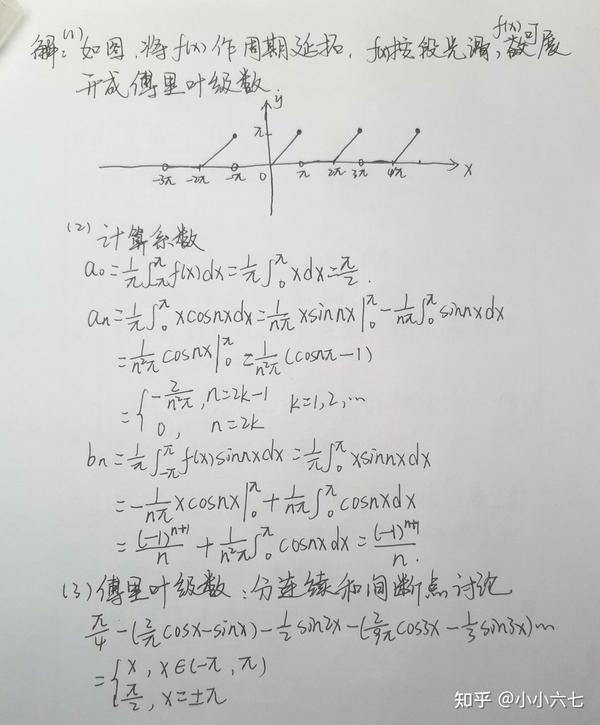 解:(1)如图,将f(x)作周期延拓,f(x)按段光滑,f(x)可展
开成傅里叶级数.
y
π
-3π -2π -π 0 π 2π 3π 4π x
(2)计算系数
a₀=1/π∫_{-π}^{π}f(x)dx=1/π∫_0^π xdx=π/2.
aₙ=1/π∫_0^π xcosnxdx=1/(nπ) xsinnx|_0^π-1/(nπ)∫_0^π sinnxdx
=1/(n²π) cosnx|_0^π=1/(n²π)(cosnπ-1)
={-2/(n²π), n=2k-1 k=1,2,…
0, n=2k
bₙ=1/π∫_{-π}^{π}f(x)sinnxdx=1/π∫_0^π xsinnxdx
=-1/(nπ) xcosnx|_0^π+1/(nπ)∫_0^π cosnxdx
=(-1)^{n+1}/n+1/(n²π)∫_0^π cosnxdx=(-1)^{n+1}/n.
(3)傅里叶级数:分连续和间断点讨论
π/4-(2/π cosx-sinx)-1/2 sin2x-(2/(9π) cos3x-1/3 sin3x)…
={x, x∈(-π,π)
π/2, x=±π
知乎 @小小六七